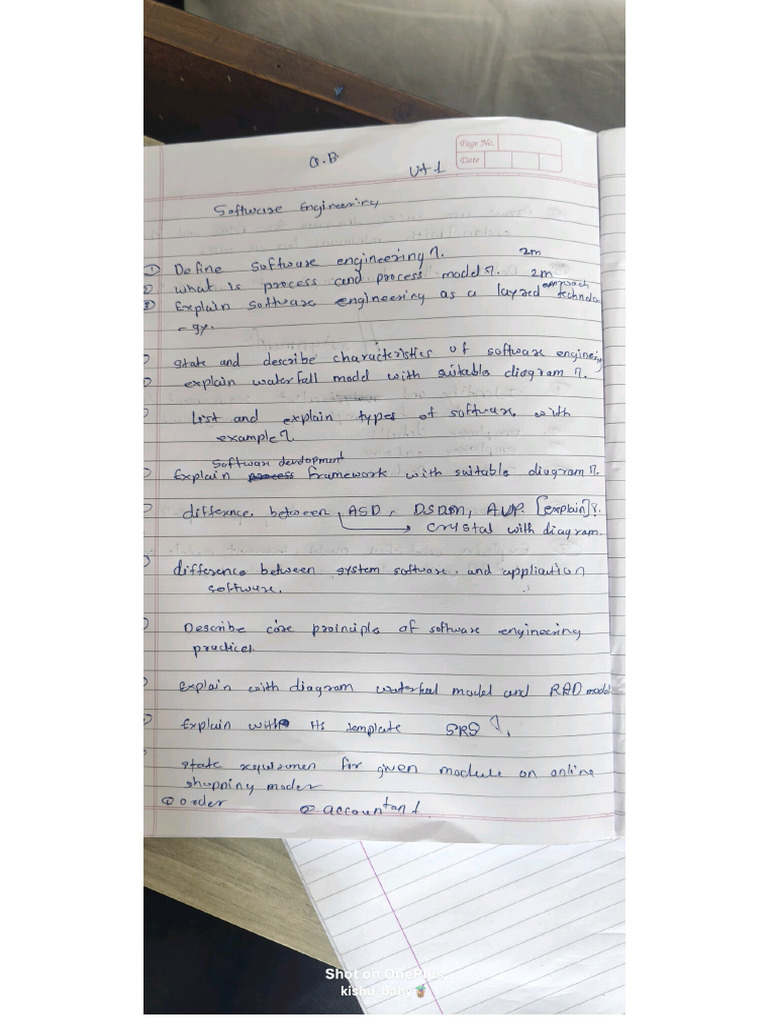 Page No.
Date
Q.B
Ut 1
Software Engineering
① Define software engineering?. 2m
② what is process and process model?. 2m
③ Explain software engineering as a layred approach technolo
- gy.
state and describe characteristics of software engineeing
explain waterfall model with suitable diagram ?.
List and explain types of software with
example?
Software development
Explain process framework with suitable diagram ?.
differnce between ASD, DSDM, AUP. [explain]?.
crystal with diagram.
difference between system software and appliaction
software.
Describe core proinciple of software engineering
practice.
explain with diagram waterfal model and RAD model
Explain with its template SRS ?.
state requiremen for given module on online
shopping moder
① order ② accountant.
Shot on OnePlus